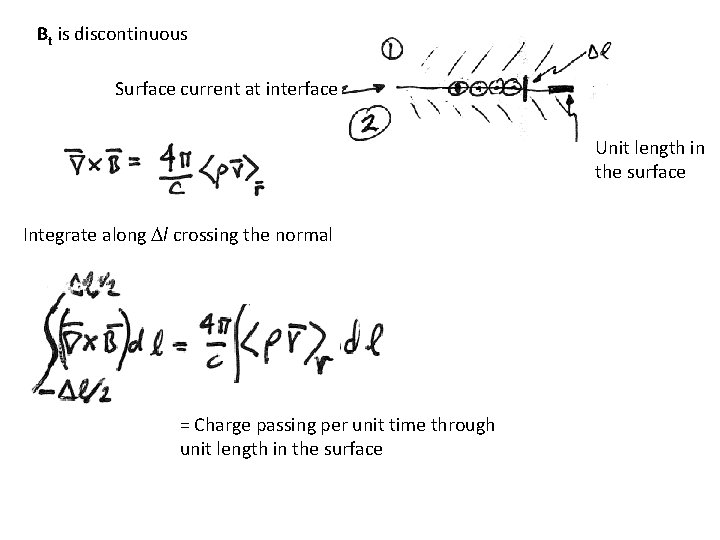 Bt is discontinuous
① Δl
Surface current at interface
②
Unit length in
the surface
∇̄×B̄ = 4π/c <ρv̄>r̄
Integrate along Δl crossing the normal
∫_{-Δl/2}^{Δl/2} (∇̄×B̄) dl = 4π/c ∫<ρv̄>r dl
= Charge passing per unit time through
unit length in the surface